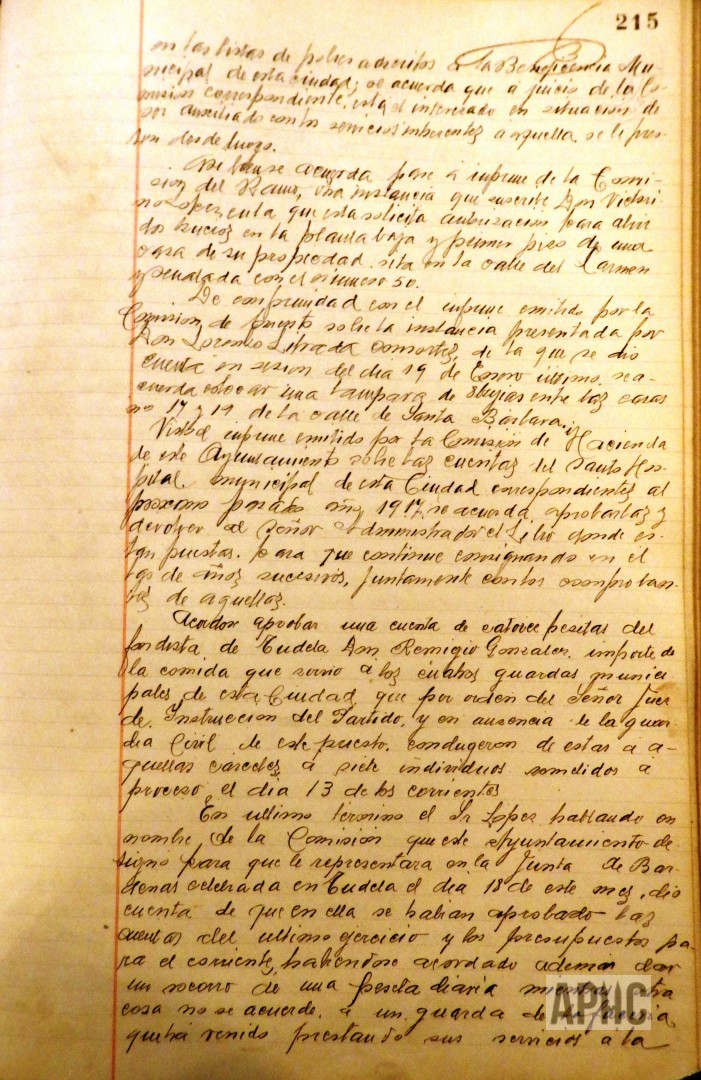 215
en las listas de pobres adscritos a la Beneficencia Mu-
nicipal de esta ciudad; se acuerda que a juicio de la Co-
mision correspondiente, esta el interesado en situacion de
ser auxiliado con los servicios inherentes a aquella, se le pres-
ten desde luego.
se acuerda pase a informe de la Comi-
sion del Ramo, una instancia que suscribe Don Victori-
no Lopez, en la que esta solicita autorizacion para abrir
dos huecos en la planta baja y primer piso de una
casa de su propiedad, sita en la calle del Carmen
y señalada con el numero 50.
De conformidad con el informe emitido por la
Comision de Fomento sobre la instancia presentada por
Don Lorenzo Litrada consortes, de la que se dio
cuenta en sesion del dia 19 de Enero ultimo, se a-
cuerda colocar una lampara de bujias entre las casas
nos 17 y 19 de la calle de Santa Bárbara.
Visto el informe emitido por la Comision de Hacienda
de este Ayuntamiento sobre las cuentas del Santo Hos-
pital municipal de esta Ciudad correspondientes al
proximo pasado año 1917, se acuerda aprobarlas y
devolver al Señor Administrador el Libro donde es-
tan puestas, para que continue consignando en el
las de años sucesivos, juntamente con los comproban-
tes de aquellas.
Acordose aprobar una cuenta de catorce pesetas del
fondista de Tudela Don Remigio Gonzalez, importe de
la comida que sirvio a los cuatro guardas munici-
pales de esta Ciudad que por orden del Señor Juez
de Instruccion del Partido, y en ausencia de la guar-
dia Civil de este puesto, condugeron de estas a a-
quellas carceles, a siete individuos sometidos a
proceso, el dia 13 de los corrientes.
En ultimo termino el Sr Lopez hablando en
nombre de la Comision que este Ayuntamiento de-
signo para que le representara en la Junta de Bar-
denas celebrada en Tudela el dia 18 de este mes, dio
cuenta de que en ella se habian aprobado las
cuentas del ultimo ejercicio y los presupuestos pa-
ra el corriente, habiendose acordado ademas dar
un socorro de una peseta diaria mientras otra
cosa no se acuerde, a un guarda de
que ha venido prestando sus servicios a la
APHC